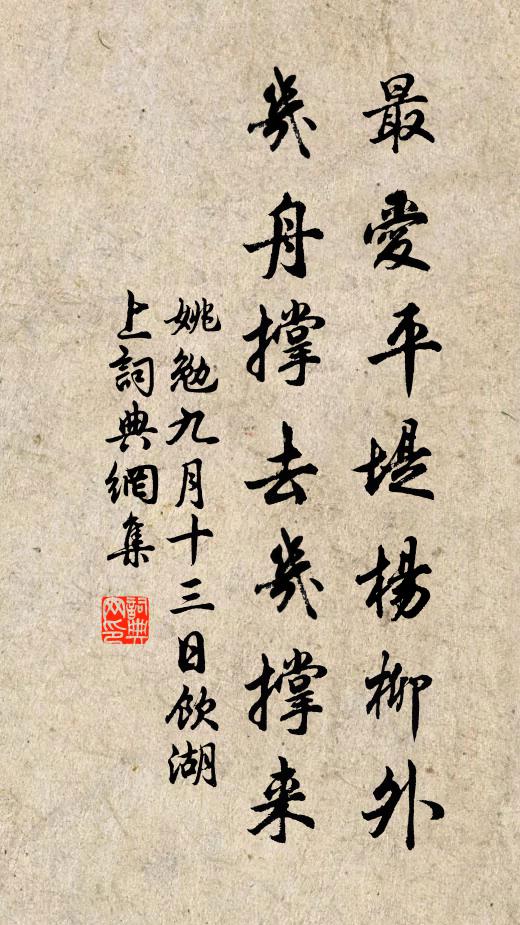 最愛平堤楊柳外
幾舟撐去幾撐来
姚勉九月十三日飲湖
上詞典網集
詞典网印